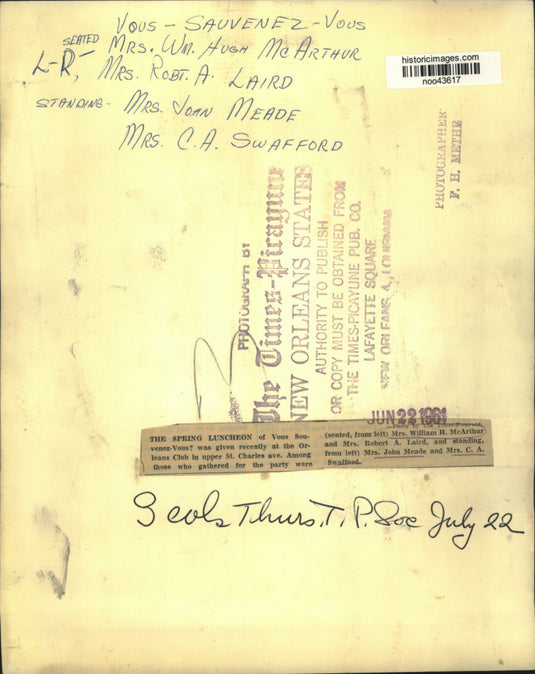 VOUS - SAUVENEZ - VOUS
SEATED MRS. WM. HUGH McARTHUR
L-R, MRS. ROBT. A. LAIRD
STANDING - MRS. JOHN MEADE
MRS. C.A. SWAFFORD
historicimages.com
noo43617
PHOTOGRAPHER
F. H. METHE
PHOTOGRAPH BY
The Times-Picayune
NEW ORLEANS STATES
AUTHORITY TO PUBLISH
OR COPY MUST BE OBTAINED FROM
THE TIMES-PICAYUNE PUB. CO.
LAFAYETTE SQUARE
NEW ORLEANS 4, LOUISIANA
JUN 22 1961
THE SPRING LUNCHEON of Vous Sou-
venez-Vous? was given recently at the Or-
leans Club in upper St. Charles ave. Among
those who gathered for the party were
(seated, from left) Mrs. William H. McArthur
and Mrs. Robert A. Laird, and standing,
from left) Mrs. John Meade and Mrs. C. A.
Swafford.
3 cols Thurs. T. P. Soc July 22